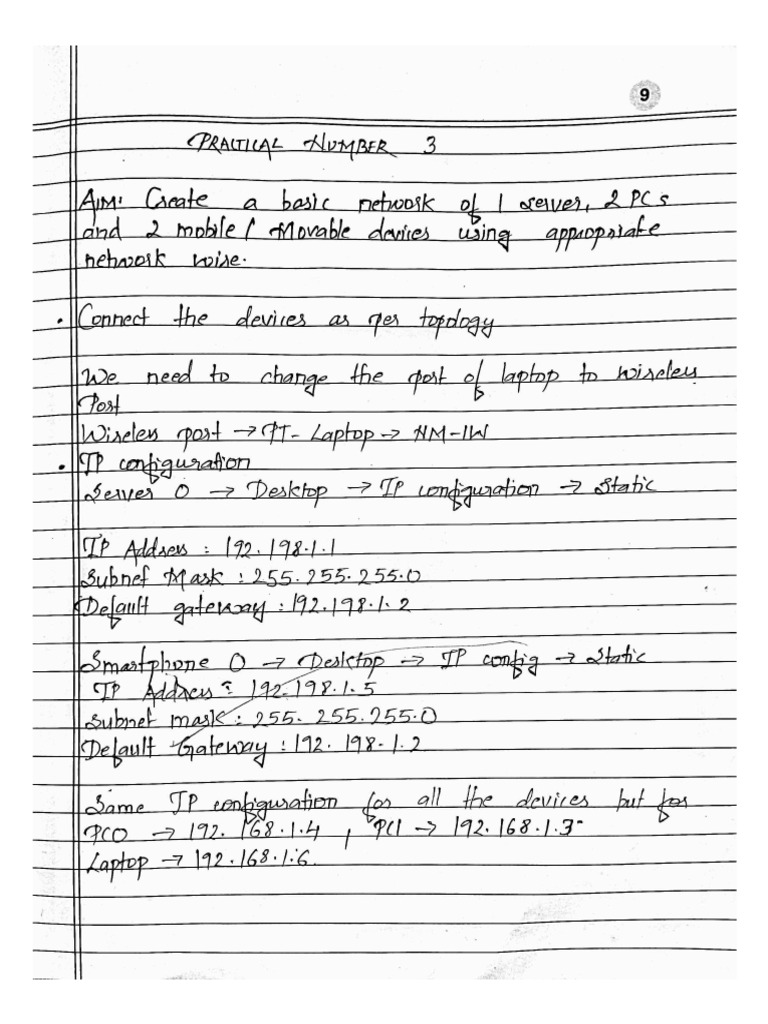 9
PRACTICAL NUMBER 3
AIM: Create a basic network of 1 server, 2 PCs
and 2 mobile / Movable devices using appropriate
network wire.
• Connect the devices as per topology
We need to change the port of laptop to wireless
Port
Wireless port → PT-Laptop → NM-1W
• IP configuration
Server 0 → Desktop → IP configuration → Static
IP Address : 192.198.1.1
Subnet Mask : 255.255.255.0
Default gateway : 192.198.1.2
Smartphone 0 → Desktop → IP config → Static
IP Address : 192.198.1.5
Subnet mask : 255.255.255.0
Default Gateway : 192.198.1.2
Same IP configuration for all the devices but for
PC0 → 192.168.1.4 , PC1 → 192.168.1.3
Laptop → 192.168.1.6.